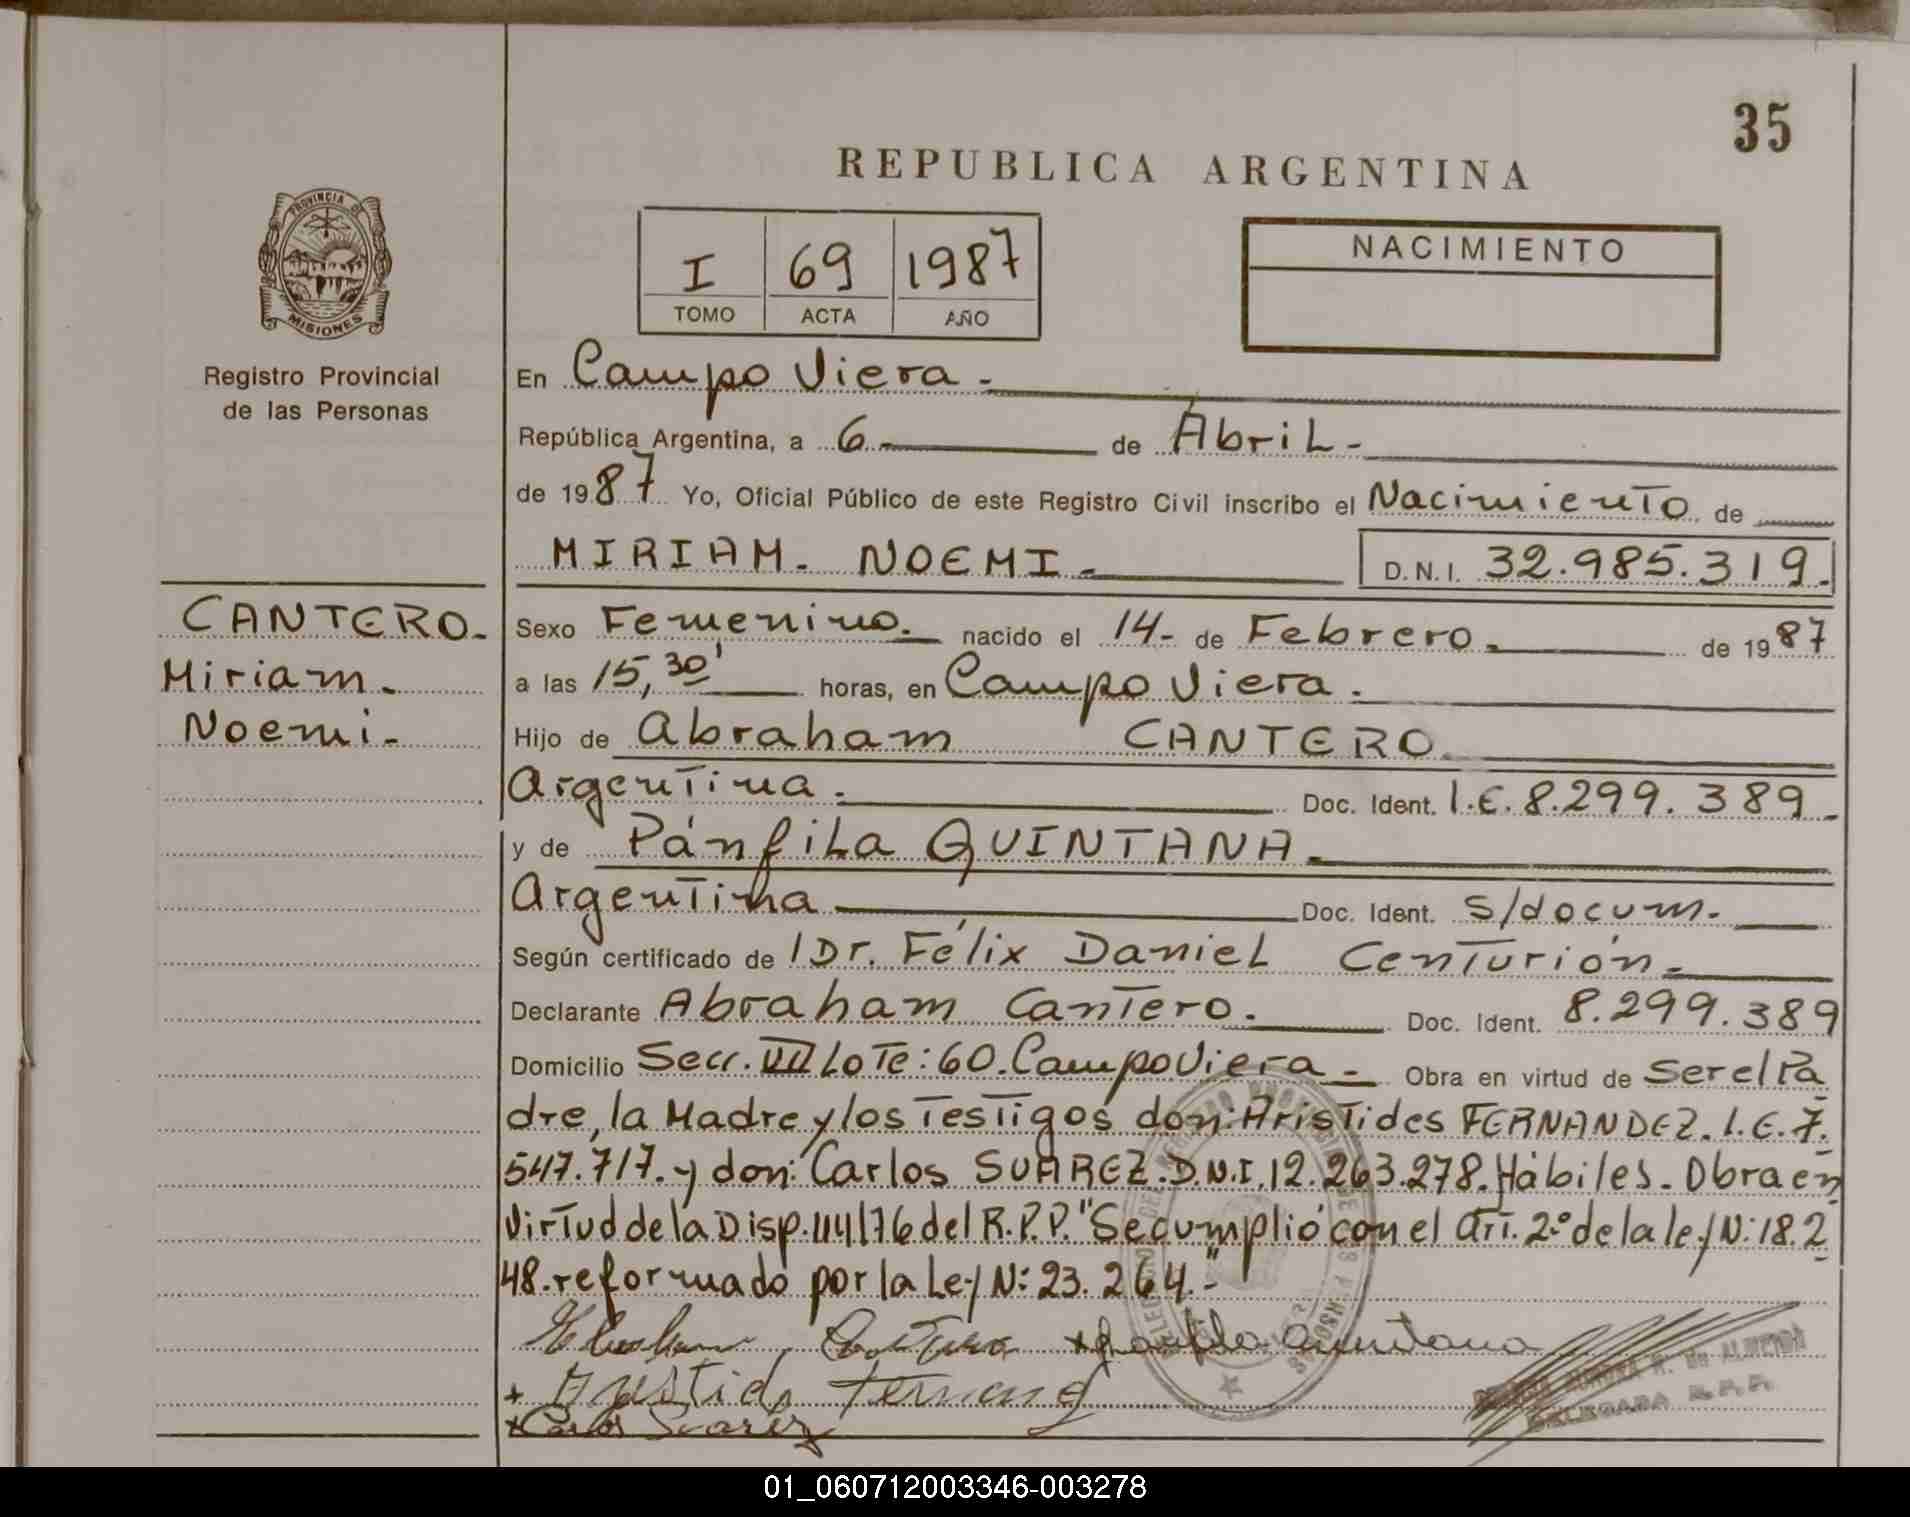 35
REPUBLICA ARGENTINA
PROVINCIA DE
MISIONES
Registro Provincial
de las Personas
I 69 1987
TOMO ACTA AÑO
NACIMIENTO
En Campo Viera.-
República Argentina, a 6 de Abril-
de 1987 Yo, Oficial Público de este Registro Civil inscribo el Nacimiento de
MIRIAM. NOEMI.- D.N.I. 32.985.319.
CANTERO.-
Miriam.
Noemi.-
Sexo Femenino. nacido el 14- de Febrero. de 1987
a las 15,30' horas, en Campo Viera.
Hijo de Abraham CANTERO.
Argentina. Doc. Ident. I.E.8.299.389.
y de Pánfila QUINTANA.
Argentina Doc. Ident. S/docum.
Según certificado de /Dr. Félix Daniel Centurión.
Declarante Abraham Cantero. Doc. Ident. 8.299.389
Domicilio Secc. VII Lote: 60. Campo Viera.- Obra en virtud de Ser el Pa
dre, la Madre y los Testigos don: Aristides FERNANDEZ. I.E.7.
547.717. y don: Carlos SUAREZ. D.N.I. 12.263.278. Hábiles. Obra en
Virtud de la Disp. 114/76 del R.P.P. "Se cumplió con el art. 2º de la ley N: 18.2
48. reformado por la Ley N: 23.264.-"
Quintana
Carlos Suarez
DE ALMEIDA
DELEGADA R.P.P.
01_060712003346-003278